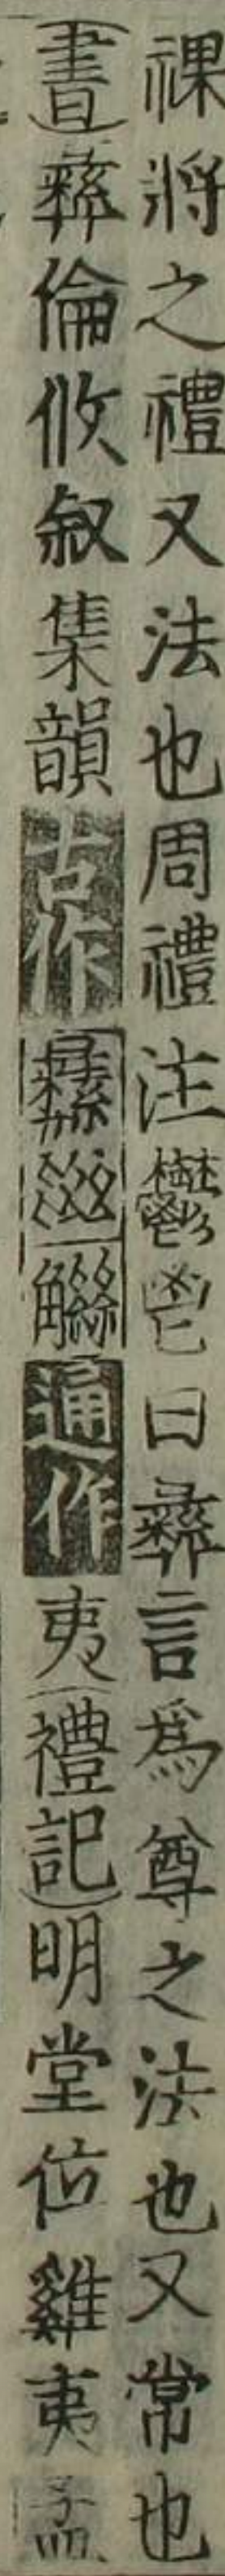 祼將之禮又法也周禮注鬱鬯曰彝言爲尊之法也又常也
書彝倫攸叙集韻古作𢑴𢑱通作夷禮記明堂位雞夷孟